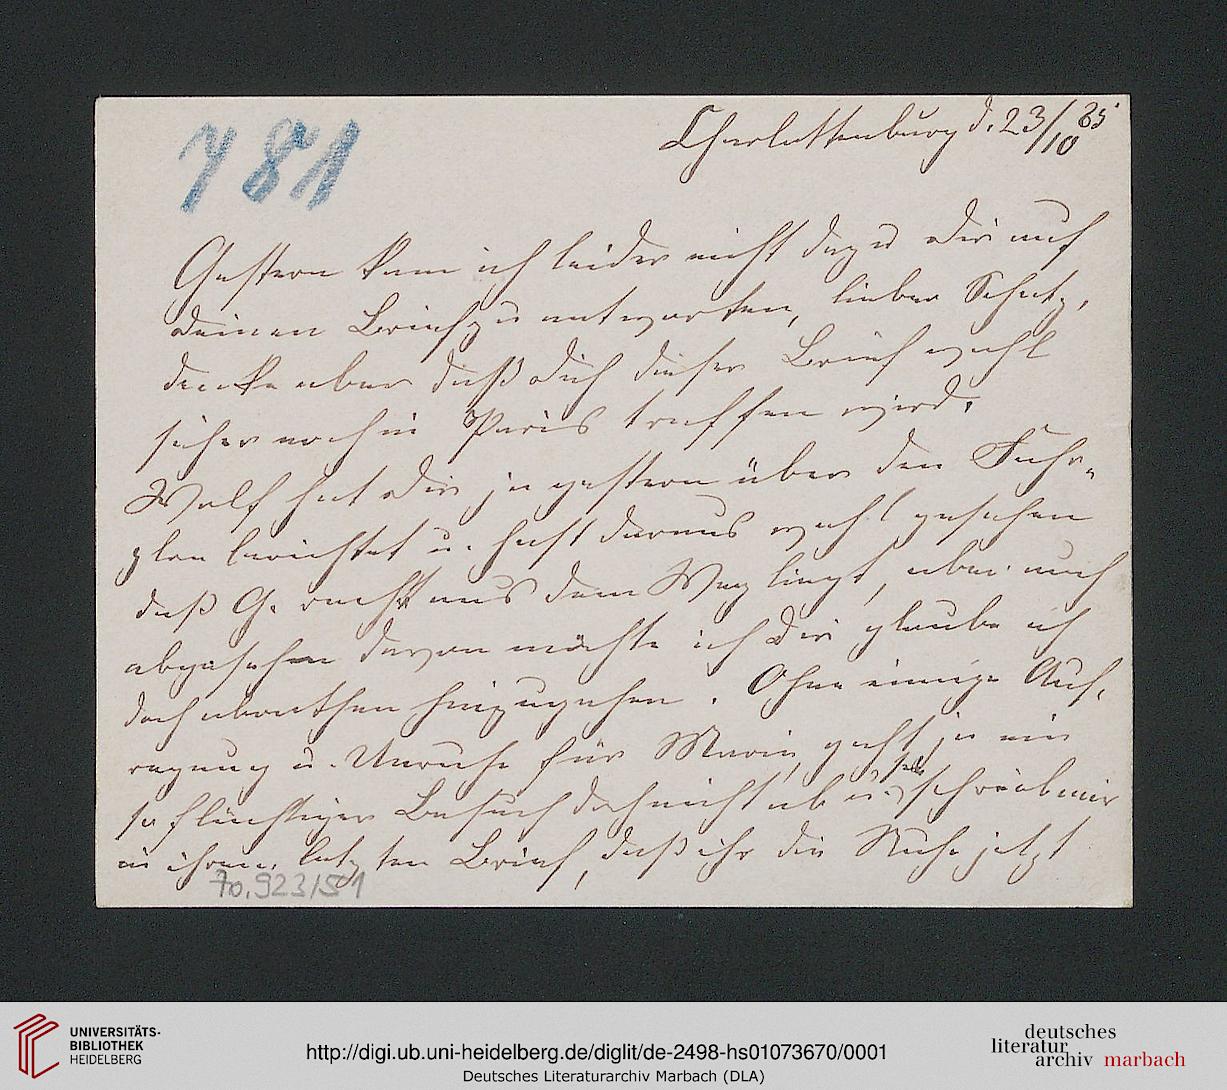 781
Charlottenburg d. 23/10 85
Gestern kam ich leider nicht dazu Dir auf
Deinen Brief zu antworten, lieber Schatz,
denke aber daß Dich dieser Brief wohl
sicher noch in Paris treffen wird.
Wolf hat Dir ja gestern über den Fahr-
plan berichtet u. hast daraus wohl gesehen
daß G. recht aus dem Weg liegt, aber auch
abgesehen davon möchte ich Dir glaube ich
doch abrathen hinzugehen. Ohne einige Auf-
regung u. Unruhe für Marie, geht ja ein
so flüchtiger Besuch doch nicht ab u. sie schreibt mir
in ihrem letzten Brief, daß ihr die Ruhe jetzt
70.923/51
UNIVERSITÄTS-
BIBLIOTHEK
HEIDELBERG
http://digi.ub.uni-heidelberg.de/diglit/de-2498-hs01073670/0001
Deutsches Literaturarchiv Marbach (DLA)
deutsches
literatur
archiv marbach